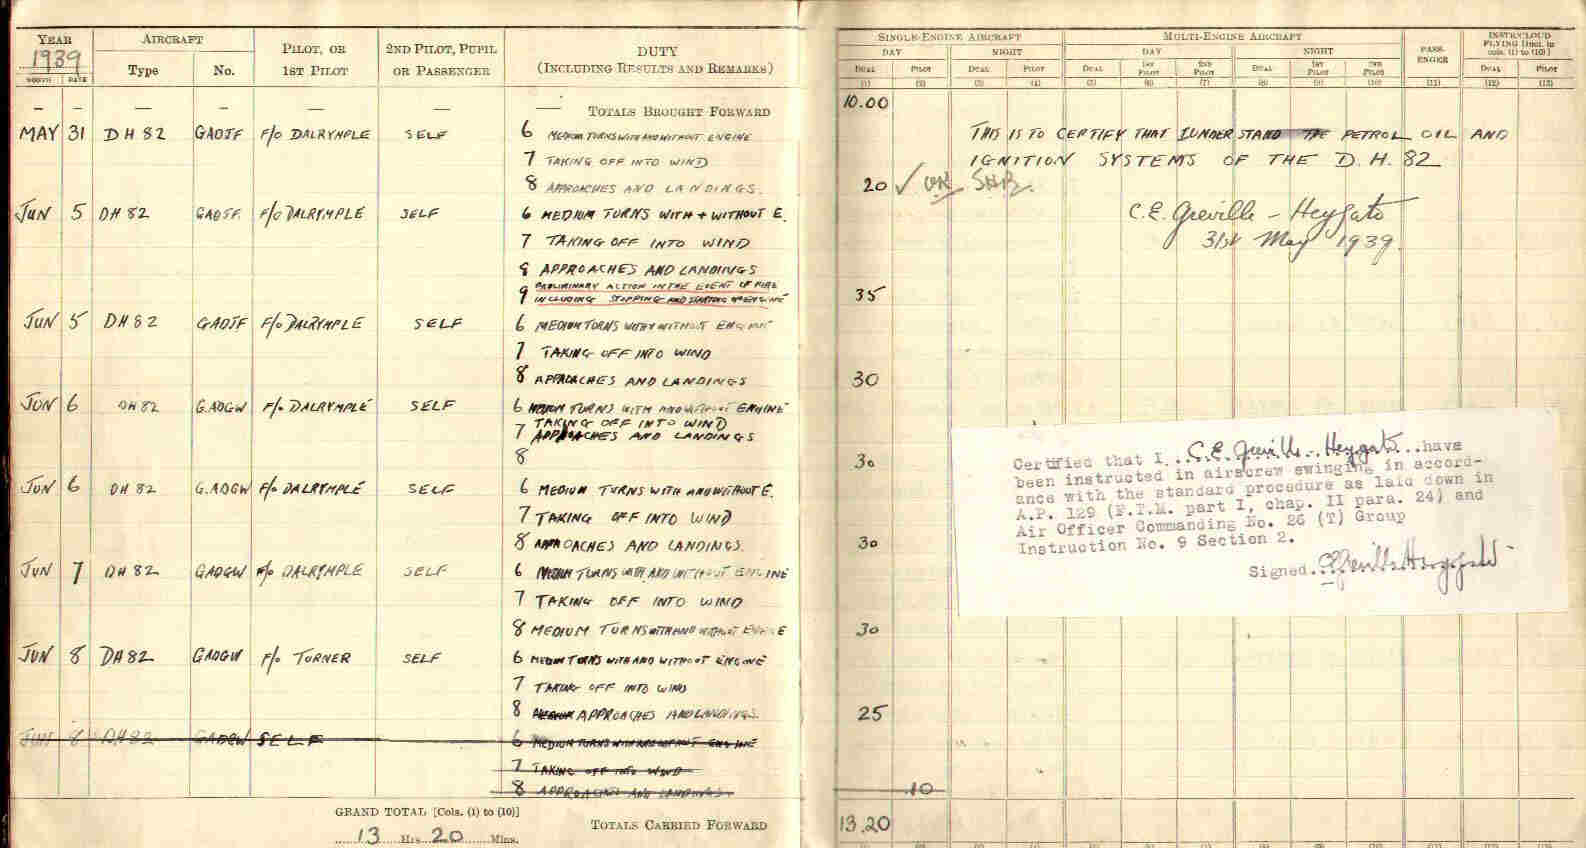 YEAR AIRCRAFT PILOT, OR 1ST PILOT 2ND PILOT, PUPIL OR PASSENGER DUTY (INCLUDING RESULTS AND REMARKS)
1939
MONTH DATE Type No.
— — — — — — — TOTALS BROUGHT FORWARD
MAY 31 DH 82 GADJF F/O DALRYMPLE SELF 6 MEDIUM TURNS WITH AND WITHOUT ENGINE
7 TAKING OFF INTO WIND
8 APPROACHES AND LANDINGS.
JUN 5 DH 82 GADJF. F/O DALRYMPLE SELF 6 MEDIUM TURNS WITH + WITHOUT E.
7 TAKING OFF INTO WIND
8 APPROACHES AND LANDINGS
9 PRELIMINARY ACTION IN THE EVENT OF FIRE
INCLUDING STOPPING AND STARTING OF ENGINE
JUN 5 DH 82 GADJF F/O DALRYMPLE SELF 6 MEDIUM TURNS WITH + WITHOUT ENGINE
7 TAKING OFF INTO WIND
8 APPROACHES AND LANDINGS
JUN 6 DH 82 G.ADGW F/O DALRYMPLE SELF 6 MEDIUM TURNS WITH AND WITHOUT ENGINE
TAKING OFF INTO WIND
7 APPROACHES AND LANDINGS
8
JUN 6 DH 82 G.ADGW F/O DALRYMPLE SELF 6 MEDIUM TURNS WITH AND WITHOUT E.
7 TAKING OFF INTO WIND
8 APPROACHES AND LANDINGS.
JUN 7 DH 82 GADGW F/O DALRYMPLE SELF 6 MEDIUM TURNS WITH AND WITHOUT ENGINE
7 TAKING OFF INTO WIND
8 MEDIUM TURNS WITH AND WITHOUT ENGINE
JUN 8 DH 82 GADGW F/O TURNER SELF 6 MEDIUM TURNS WITH AND WITHOUT ENGINE
7 TAKING OFF INTO WIND
8 MEDIUM APPROACHES AND LANDINGS.
JUN 8 DH 82 GADGW SELF 6 MEDIUM TURNS WITH AND WITHOUT ENGINE
7 TAKING OFF INTO WIND
8 APPROACHES AND LANDINGS.
GRAND TOTAL [Cols. (1) to (10)]
13 Hrs 20 Mins.
TOTALS CARRIED FORWARD
SINGLE-ENGINE AIRCRAFT MULTI-ENGINE AIRCRAFT PASSENGER INSTR/CLOUD FLYING [Incl. in cols. (1) to (10)]
DAY NIGHT DAY NIGHT
DUAL PILOT DUAL PILOT DUAL 1ST PILOT 2ND PILOT DUAL 1ST PILOT 2ND PILOT DUAL PILOT
(1) (2) (3) (4) (5) (6) (7) (8) (9) (10) (11) (12) (13)
10.00
THIS IS TO CERTIFY THAT I UNDERSTAND THE PETROL OIL AND
IGNITION SYSTEMS OF THE D.H. 82
20 ✓
C.E. Greville - Heygate
31st May 1939.
35
30
30
Certified that I ..C.E. Greville - Heygate...have
been instructed in airscrew swinging in accord-
ance with the standard procedure as laid down in
A.P. 129 (F.T.M. part I, chap. II para. 24) and
Air Officer Commanding No. 26 (T) Group
Instruction No. 9 Section 2.
Signed. C E Greville Heygate
30
30
25
10
13.20